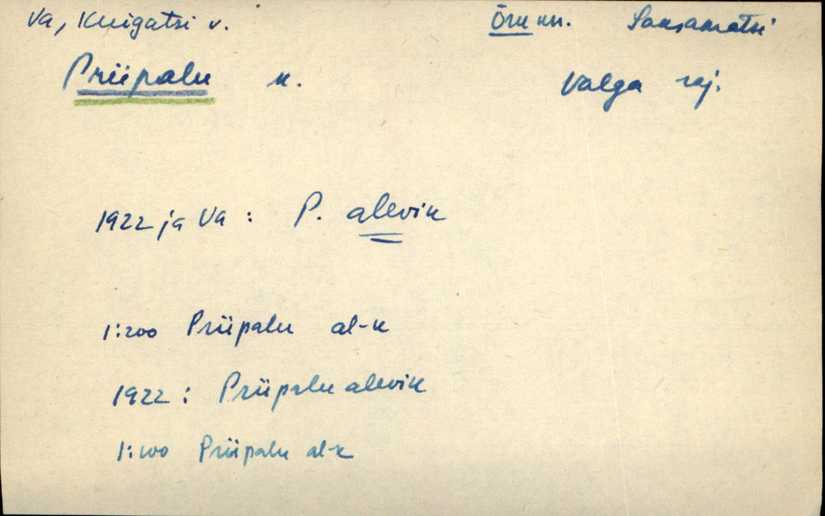 Va, Kuigatsi v. Õru kn. Sansamatsi
Priipalu k. Valga raj.
1922 ja Va: P. alevik
1:200 Priipalu al-k
1922: Priipalu alevik
1:100 Priipalu al-k